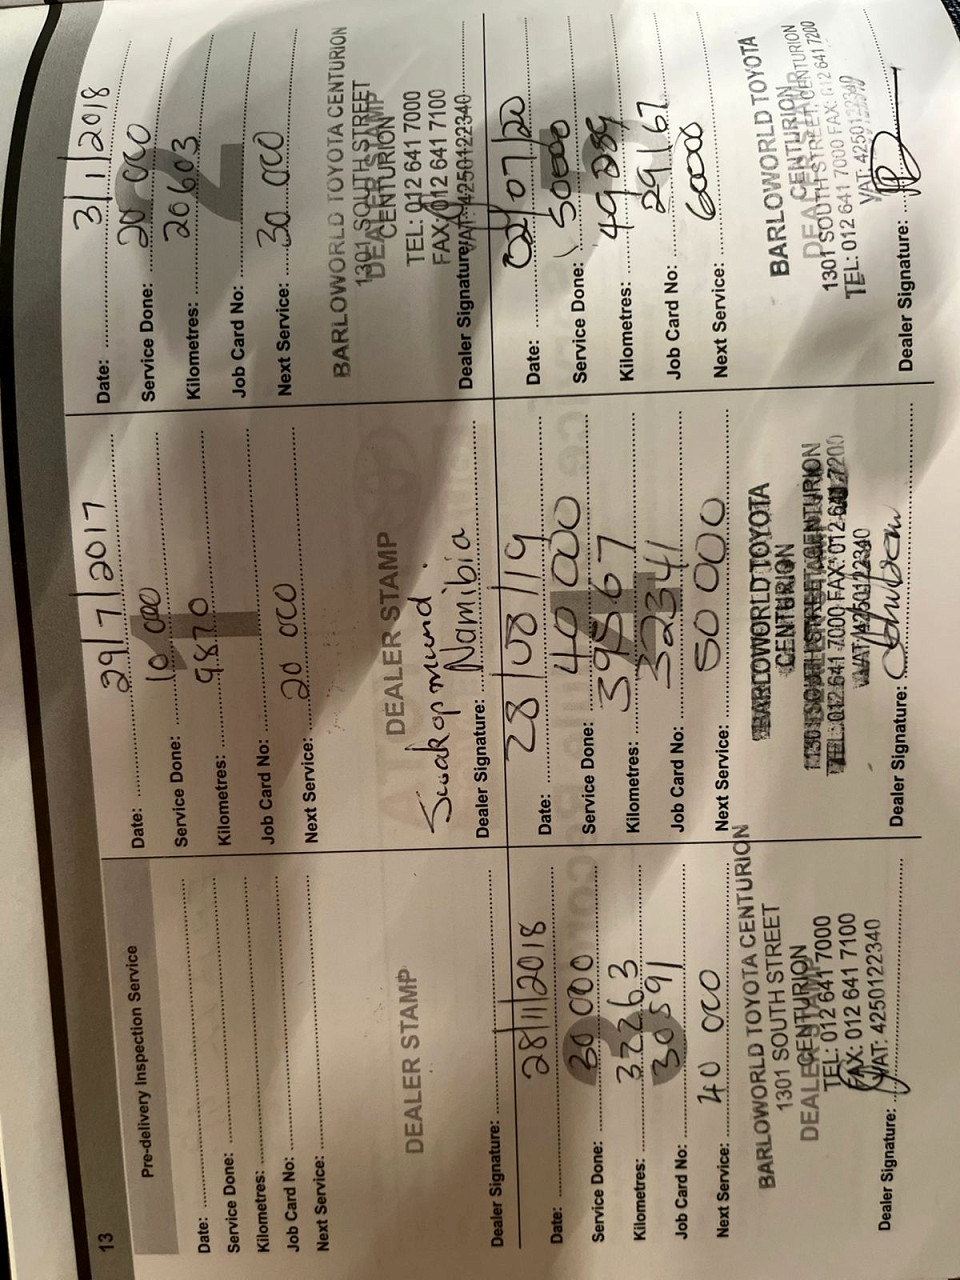 13
Pre-delivery Inspection Service
Date:
Service Done:
Kilometres:
Job Card No:
Next Service:
DEALER STAMP
Dealer Signature:
1
Date: 29/7/2017
Service Done: 10 000
Kilometres: 9870
Job Card No:
Next Service: 20 000
DEALER STAMP
Swakopmund.
Namibia
Dealer Signature:
2
Date: 3/1/2018
Service Done: 20 000
Kilometres: 20603
Job Card No:
Next Service: 30 000
BARLOWORLD TOYOTA CENTURION
1301 SOUTH STREET
DEALER STAMP
CENTURION
TEL: 012 641 7000
FAX: 012 641 7100
VAT: 4250122340
Dealer Signature:
3
Date: 28/11/2018
Service Done: 30 000
Kilometres: 32263
Job Card No: 30591
Next Service: 40 000
BARLOWORLD TOYOTA CENTURION
1301 SOUTH STREET
DEALER STAMP
CENTURION
TEL: 012 641 7000
FAX: 012 641 7100
VAT: 4250122340
Dealer Signature:
4
Date: 28/08/19
Service Done: 40 000
Kilometres: 39567
Job Card No: 32341
Next Service: 50 000
BARLOWORLD TOYOTA
CENTURION
1301 SOUTH STREET, CENTURION
TEL: 012 641 7000 FAX: 012 641 7200
VAT: 4250122340
Dealer Signature:
5
Date: 02/07/20
Service Done: 50000
Kilometres: 49289
Job Card No: 29167
Next Service: 60000
BARLOWORLD TOYOTA
CENTURION
DEALER STAMP
1301 SOUTH STREET, CENTURION
TEL: 012 641 7000 FAX: 012 641 7200
VAT: 4250122340
Dealer Signature: